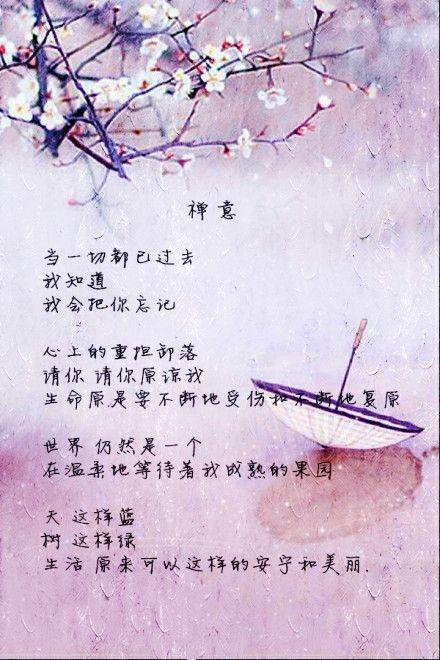 禅意
当一切都已过去
我知道
我会把你忘记
心上的重担卸落
请你 请你原谅我
生命原是要不断地受伤和不断地复原
世界 仍然是一个
在温柔地等待着我成熟的果园
天 这样蓝
树 这样绿
生活 原来可以这样的安宁和美丽.